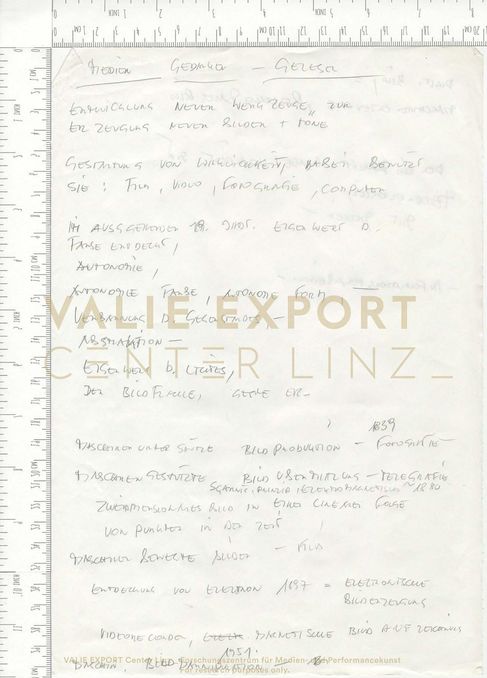 MEDIEN GEDANKEN – GELESEN
ENTWICKLUNG NEUER WERKZEUGE ZUR
ERZEUGUNG NEUER BILDER + TÖNE
GESTALTUNG VON WIRKLICHKEIT, DABEI BENUTZT
SIE: FILM, VIDEO, FOTOGRAFIE, COMPUTER
IM AUSGEHENDEN 19. JHDT. EIGENWERT D.
FARBE ENTDECKT,
AUTONOMIE,
AUTONOMIE FARBE, AUTONOMIE FORM,
VERBANNUNG D. GEGENSTANDES –
ABSTRAKTION –
EIGENWERT D. LICHTES,
DER BILDFLÄCHE,
VALIE EXPORT
CENTER LINZ_
1839
MASCHINENUNTERSTÜTZTE BILDPRODUKTION – FOTOGRAFIE
MASCHINENGESTÜTZTE BILDÜBERMITTLUNG – TELEGRAFIE
SCANNINGPRINZIP, ELEKTROMAGNETISCH ~ 1880
ZWEIDIMENSIONALES BILD IN EINER LINEAREN FOLGE
VON PUNKTEN IN DER ZEIT
MASCHINEN BEWEGTE BILDER – FILM
ENTDECKUNG VON ELEKTRON 1897 = ELEKTRONISCHE
BILDERZEUGUNG
VIDEORECORDER, MAGNETISCHE BILDAUFZEICHNUNG
1951.
VALIE EXPORT Center Linz, Forschungszentrum für Medien- und Performancekunst
For research purposes only.